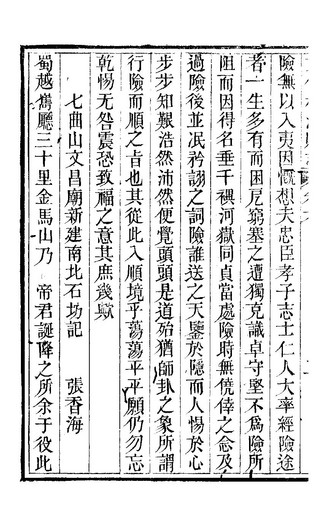 險無以入夷因慨想夫忠臣孝子志士仁人大率經險途
者一生多有而困戹窮塞之遭獨克識卓守堅不爲險所
阻而因得名垂千禩河嶽同貞當處險時無僥倖之念及
過險後並泯矜詡之詞險誰送之天鑒於隱而人惕於心
步步知艱浩然沛然便覺頭頭是道殆猶師卦之象所謂
行險而順之吉也其從此入順境乎蕩蕩平平願仍勿忘
乾惕无咎震恐致福之意其庶幾歟
七曲山文昌廟新建南北石坊記 張香海
蜀越嶲廳三十里金馬山乃 帝君誕降之所余于役此